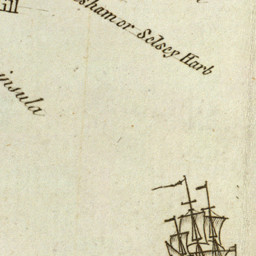 Gill
sham or Selsey Harb
insula